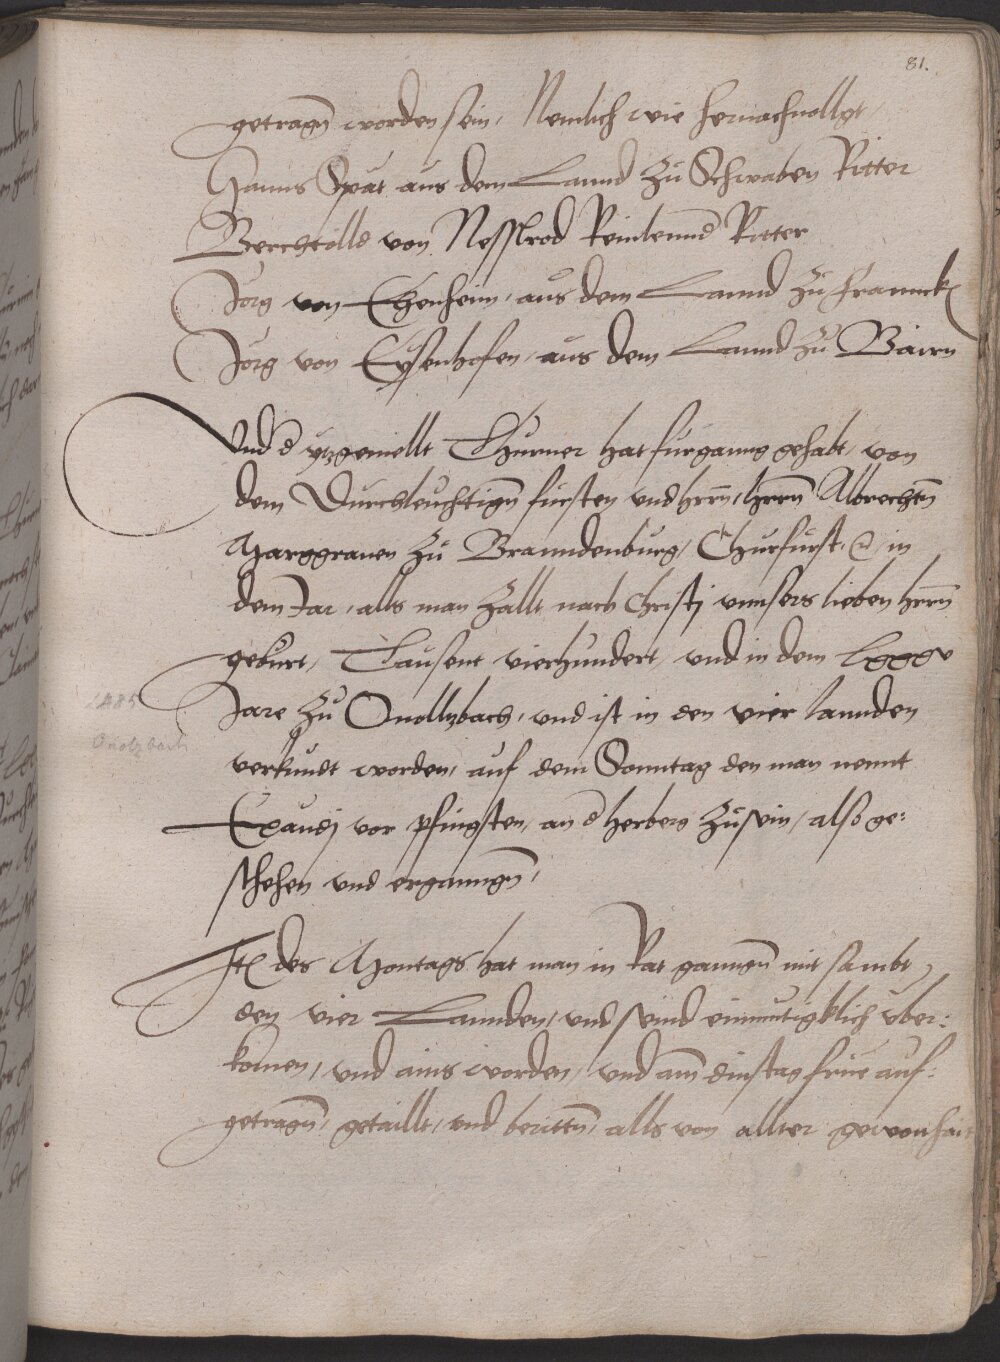 81.
getragn worden sein, Nemlich wie hernachuollgt,
Hanns Spät aus dem Lannd zu Schwaben Ritter
Berchtolld von Nesslrod Reinlennd Ritter
Jörg von Ehenheim, aus dem Lannd zu Franncken
Jörg von Eysenhofen, aus dem Lannd zu Bairn
Vnd d yzgemellt Thurner hat fürganng gehabt, von
dem Durchleuchtign fürsten vnd hrrn, hrrn Albrechtn
Marggrauen zu Branndenburg, Churfürst, in
dem Jar, alls man zallt nach Christj vnnsers lieben hrrn
geburt, Tausent vierhundert, vnd in dem lxxxv
1485
Jare zu Onollzbach, vnd ist in den vier lannden
Onolzbach
verkundt worden, auf dem Sonntag den man nennt
Exaudj vor pfingsten, an d herberg zu sein, also ge:
schehen vnd ergangn,
Itē des Montags hat man in Rat ganngn mit sambt
den vier Lannden, vnd seind einmutigklich über:
komen, vnd ains worden, vnd am dinstag früe auf:
getragn, getaillt, vnd berittn, alls von allter gewonhait